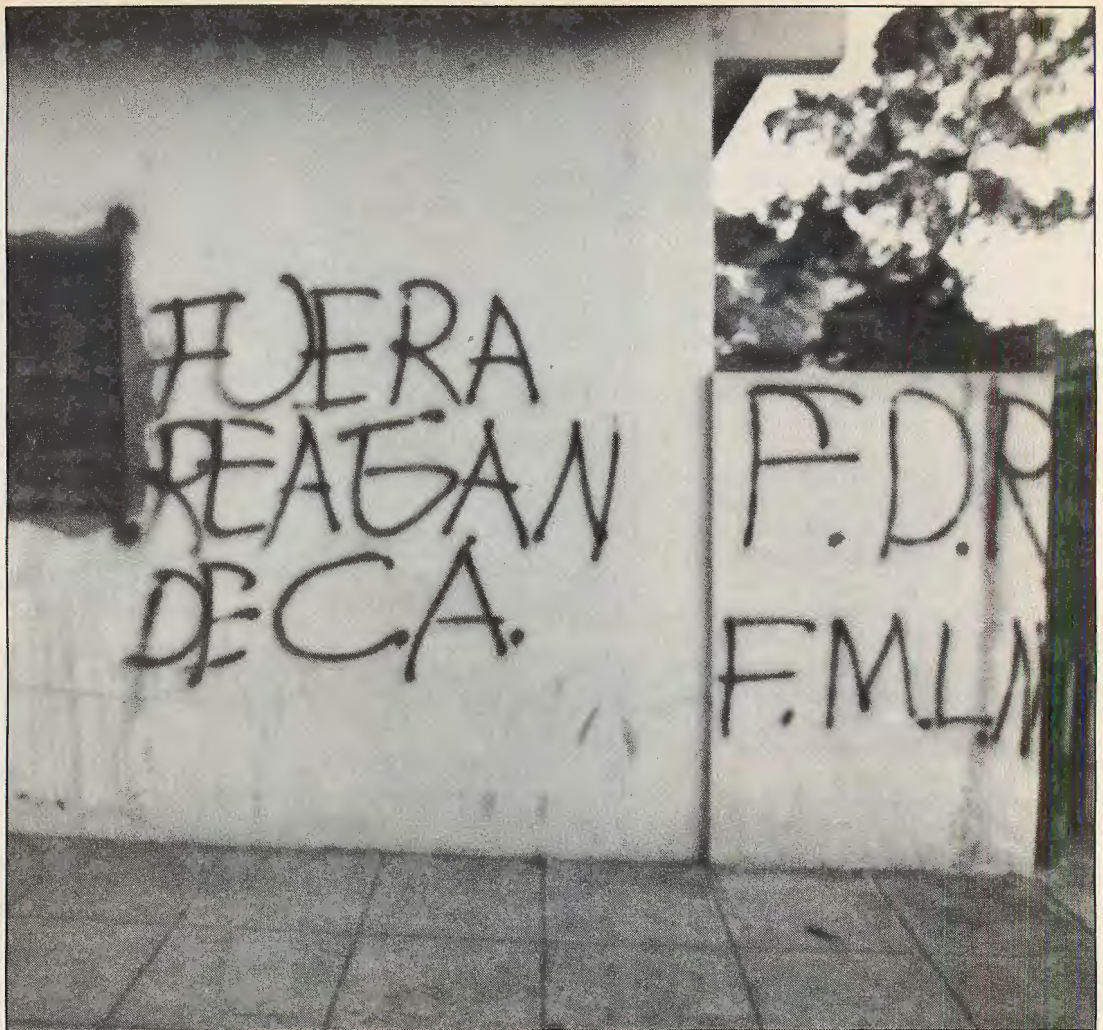 FUERA
REAGAN
DE C.A.
F.D.R
F.M.L.N